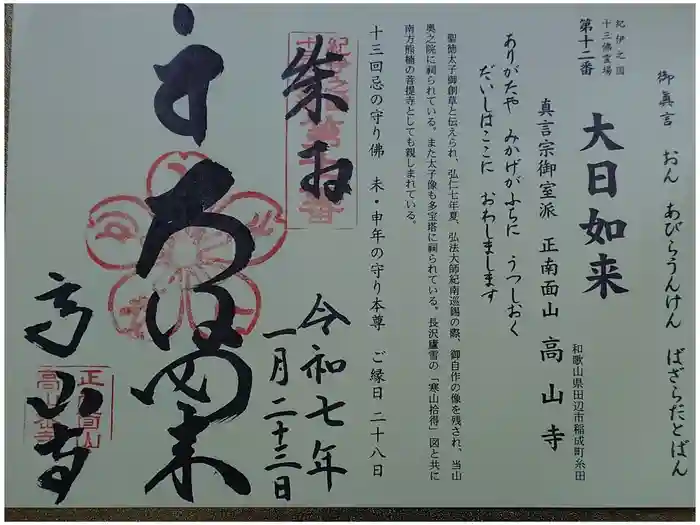 御眞言　おん　あびらうんけん　ばざらだとばん
紀伊之国
十三佛霊場
第十二番
大日如来
真言宗御室派　正南面山　高山寺
和歌山県田辺市稲成町糸田
ありがたや　みかげがふちに　うつしおく
だいしはここに　おわしまします
聖徳太子御創草と伝えられ、弘仁七年夏、弘法大師紀南巡錫の際、御自作の像を残され、当山
奥之院に祠られている。また太子像も多宝塔に祠られている。長沢廬雪の「寒山拾得」図と共に
南方熊楠の菩提寺としても親しまれている。
十三回忌の守り佛　未・申年の守り本尊　ご縁日　二十八日
奉拝
令和七年
一月二十三日
大日如来
高山寺